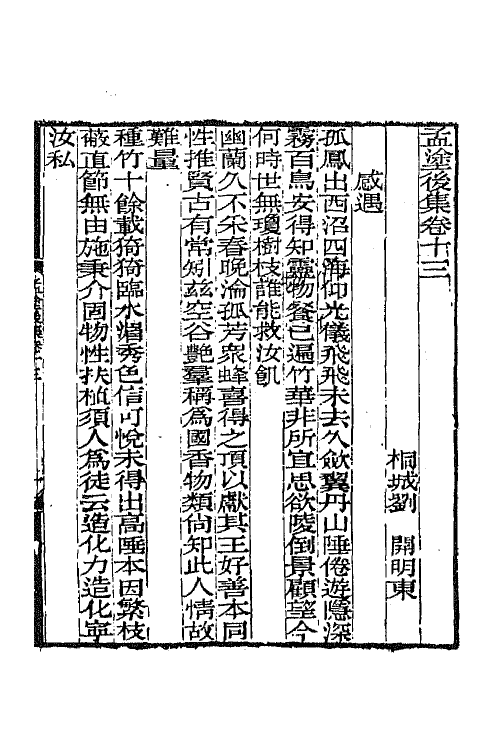 孟塗後集卷十三
桐城劉　開明東
感遇
孤鳳出西沼四海仰光儀飛飛未去久斂翼丹山陲倦遊隱深
霧百鳥安得知靈物餐已遍竹華非所宜思欲陵倒景顧望今
何時世無瓊樹枝誰能救汝飢
幽蘭久不采春晚淪孤芳衆蜂喜得之頂以獻其王好善本同
性推賢古有常矧茲空谷艷羣稱爲國香物類尙知此人情故
難量
種竹十餘載猗猗臨水湄秀色信可悅未得出高陲本因繁枝
蔽直節無由施秉介固物性扶植須人爲徒云造化力造化寧
汝私